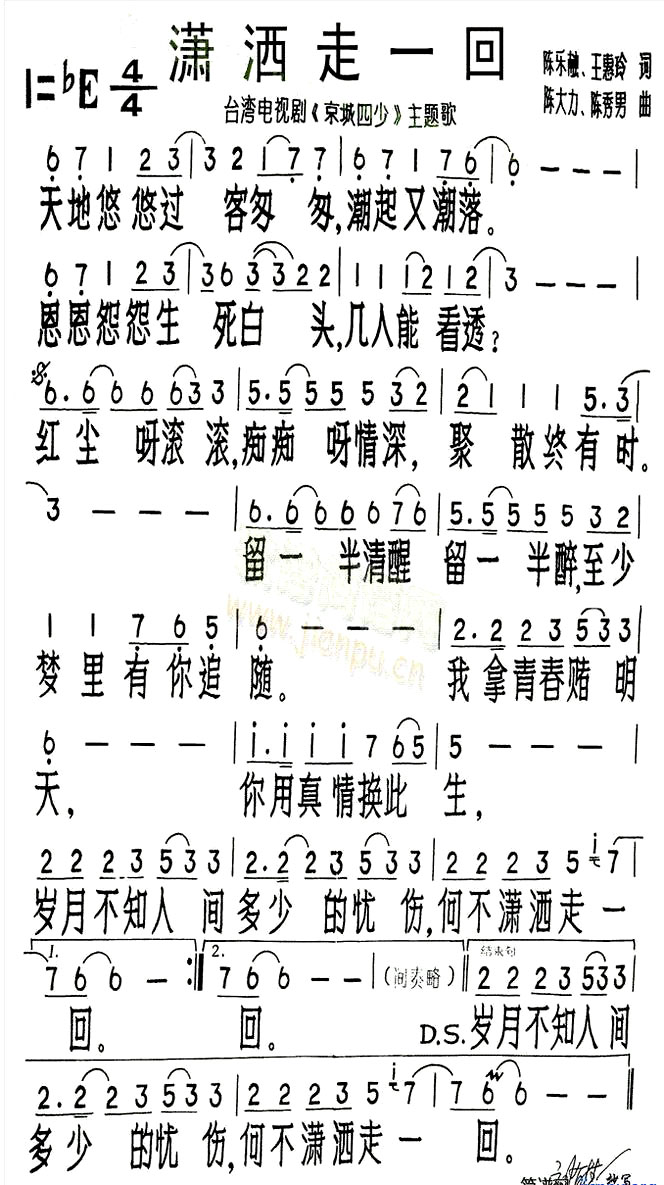 潇洒走一回
1=♭E 4/4
台湾电视剧《京城四少》主题歌
陈乐融、王惠玲 词
陈大力、陈秀男 曲
6 7 1 2 3 | 3 2 1 7 7 | 6 6 7 1 7 6 | 6 — — — |
天地悠悠过 客匆 匆,潮起又潮落。
6 7 1 2 3 | 3 6 3 3 2 2 | 1 1 1 2 1 2 | 3 — — — |
恩恩怨怨生 死白 头,几人能 看透?
6.6 6 6 6 6 3 3 | 5.5 5 5 5 5 3 2 | 2 1 1 1 5.3 |
红尘 呀滚 滚,痴痴 呀情深, 聚 散终有时。
3 — — — | 6.6 6 6 6 7 6 | 5.5 5 5 5 3 2 |
留一 半清醒 留一 半醉,至少
1 1 7 6 5 | 6 — — — | 2.2 2 3 5 3 3 |
梦里有你追 随。 我拿青春赌 明
6 — — — | i.i i i 7 6 5 | 5 — — — |
天, 你用真情换此 生,
2 2 2 3 5 3 3 | 2.2 2 3 5 3 3 | 2 2 2 3 5 i 7 |
岁月不知人 间多少 的忧 伤,何不潇洒走一
1. 2. 结束句
7 6 6 — :‖ 7 6 6 — — | (间奏略) ‖ 2 2 2 3 5 3 3 |
回。 回。 D.S. 岁月不知人间
2.2 2 3 5 3 3 | 2 2 2 3 5 i 7 | 7 6 6 — — ‖
多少 的忧 伤,何不潇洒走一 回。
www.jianpu.cn